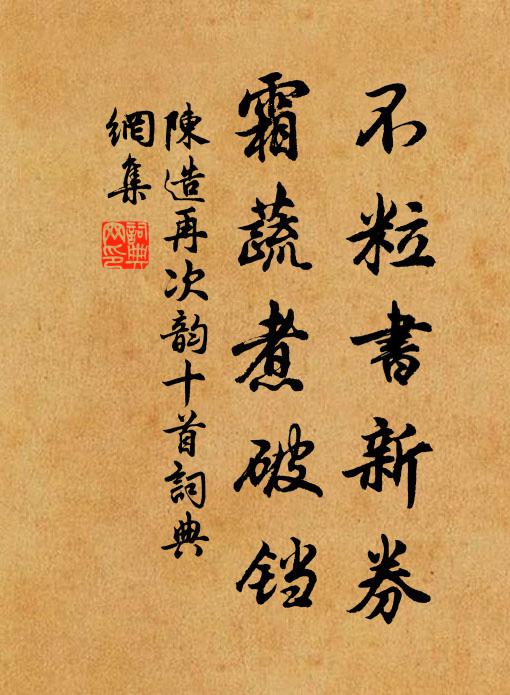 不粒書新券
霜蔬煮破铛
陳造再次韵十首詞典
網集
詞典
网印